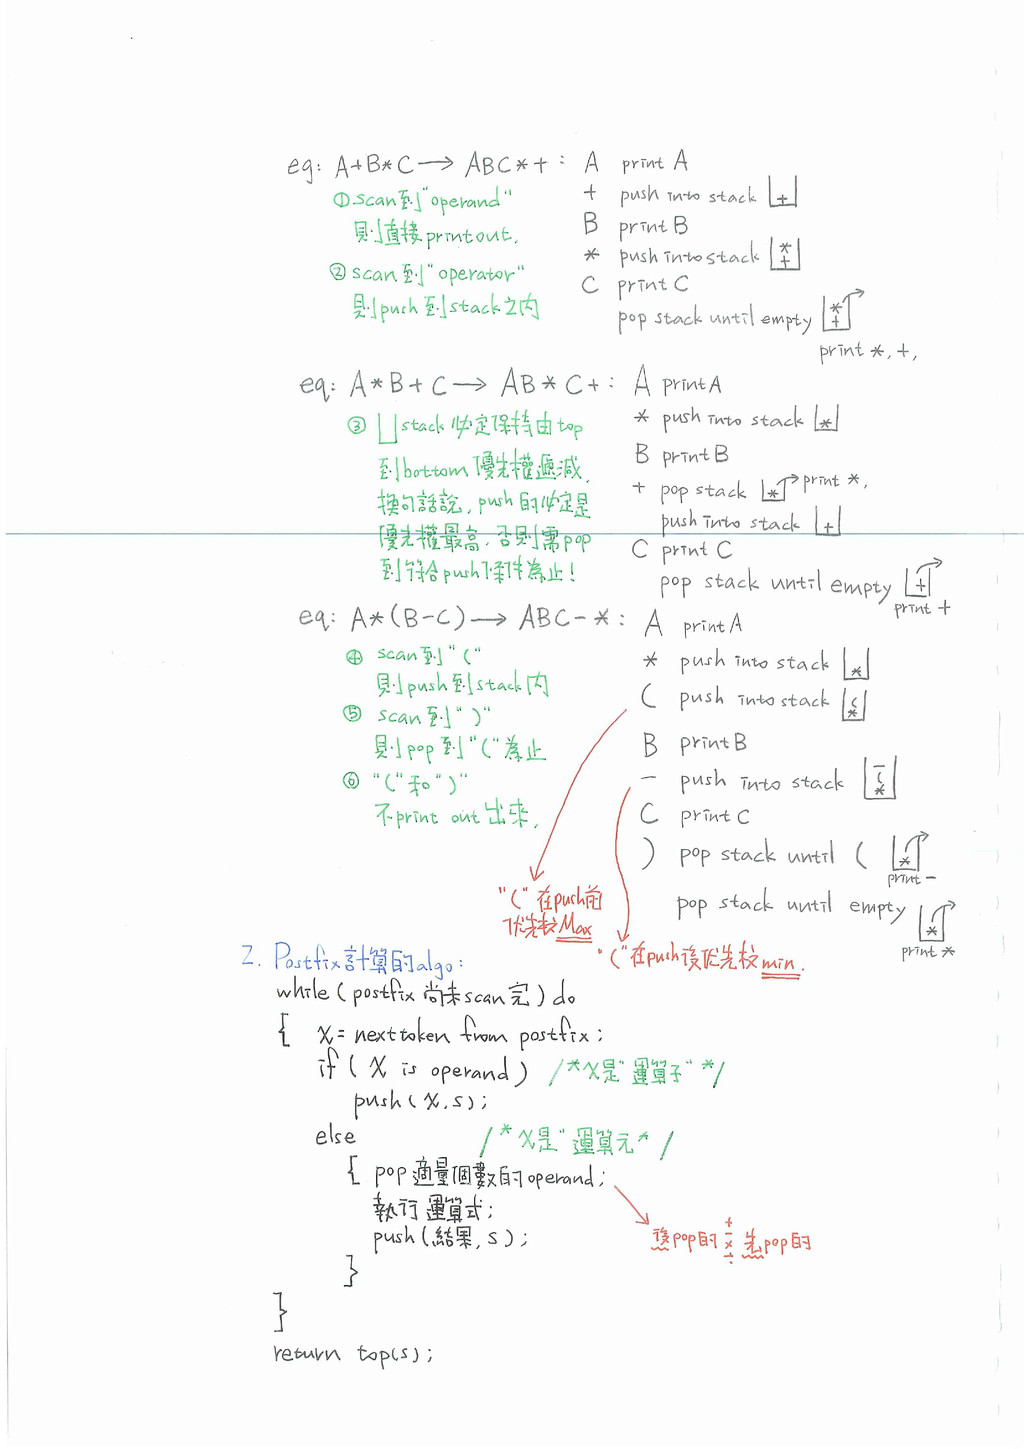 eg: A+B*C → ABC*+ : A print A
①scan到"operand"
則直接printout.
②scan到"operator"
則push到stack之內
+ push into stack +
B print B
* push into stack * +
C print C
pop stack until empty * +
print *, +,
eg: A*B+C → AB*C+ : A print A
③ stack必定保持由top
到bottom優先權遞減.
換句話說, push的必定是
優先權最高, 否則需pop
到符合push條件為止!
* push into stack *
B print B
+ pop stack * print *,
push into stack +
C print C
pop stack until empty +
print +
eg: A*(B-C) → ABC-* : A print A
④ scan到"("
則push到stack內
⑤ scan到")"
則pop到"("為止
⑥ "("和")"
不print out出來.
* push into stack *
( push into stack ( *
B print B
- push into stack - ( *
C print C
) pop stack until ( *
print -
pop stack until empty *
print *
"("在push前
優先校Max
"("在push後優先校min.
2. Postfix計算的algo:
while(postfix尚未scan完) do
{ X = next token from postfix;
if( X is operand) /*X是"運算子"*/
push(X,S);
else /*X是"運算元*/
{ pop適量個數的operand;
執行運算式;
push(結果,S);
後pop的 + - × ÷ 先pop的
}
}
return top(S);